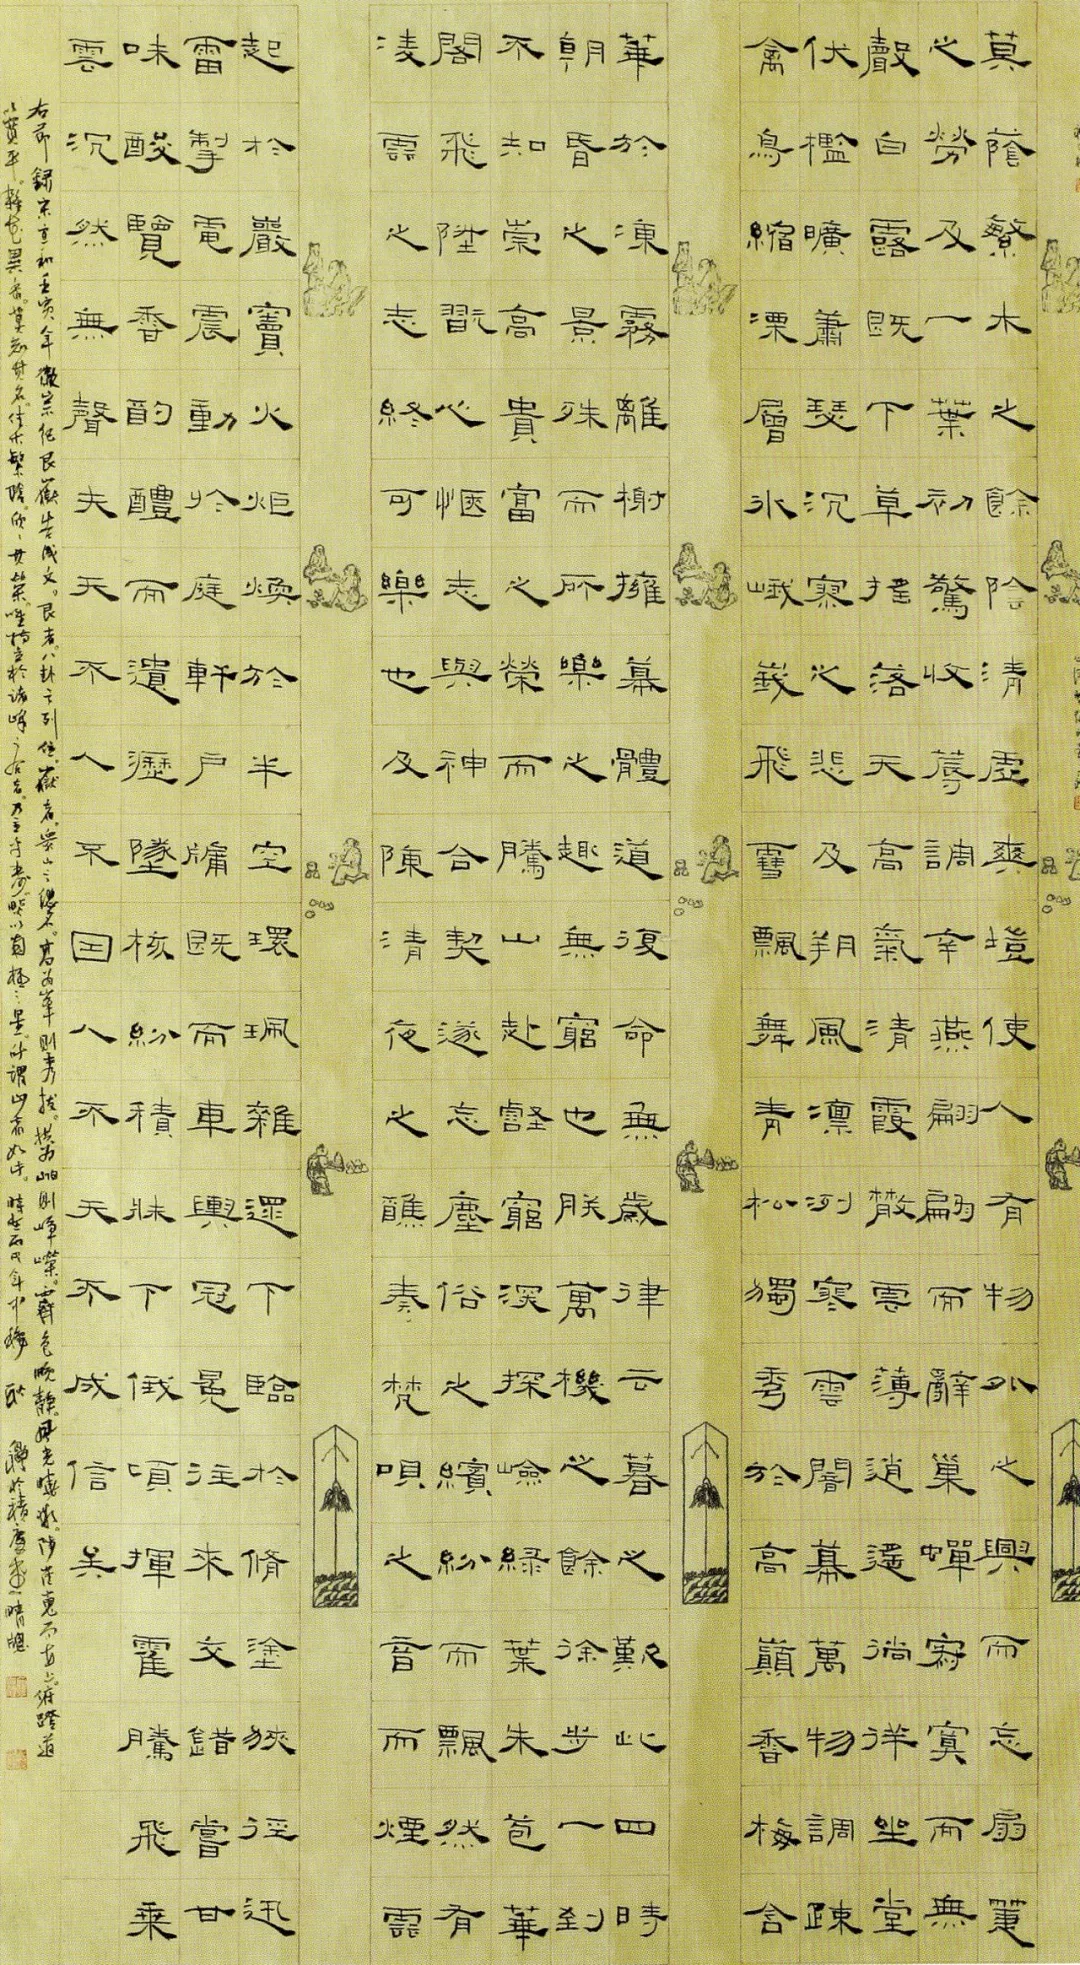 莫蔭繁木之餘陰清虛爽塏使人有物外之興而忘扇箑
之勞及一葉初驚蓐收調辛燕翩翩而辭巢蟬寂寞而無
聲白露既下草摇落天高氣清霞散雲薄逍遙徜徉坐堂
伏檻曠蕭瑟沉寥之悲及朔風凛冽寒雲闇幕萬物調疎
禽鳥縮溧層冰峨峩飛雪飄舞青松獨秀於高巔香梅含
華於凍霧離榭擁幕體道復命無歲律云暮之歎此四時
朝昏之景殊而所樂之趣無窮也朕萬機之餘徐步一到
不知崇高貴富之榮而騰山赴壑窮深探嶮緑葉朱苞華
閣飛陞翫心愜志與神合契遂忘塵俗之繽紛而飄然有
淩雲之志終可樂也及陳清夜之醮奏梵唄之音而煙雲
起於巖竇火炬煥於半空環珮雜還下臨於脩塗狹徑迅
雷掣電震動於庭軒户牖既而車輿冠冕往來交錯嘗甘
味酸覽香酌醴而遺瀝墜核紛積牀下俄頃揮霍騰飛乘
雲沉然無聲夫天不人不因人不天不成信矣
右節錄宋宣和壬寅年徽宗作艮嶽告成文。艮者。八卦之列位。嶽者。眾山之總名。高為峯則秀拔。横為岫則崢嶸。霽色晚靜。
雜花異香。莫知其名。佳木繁陰。